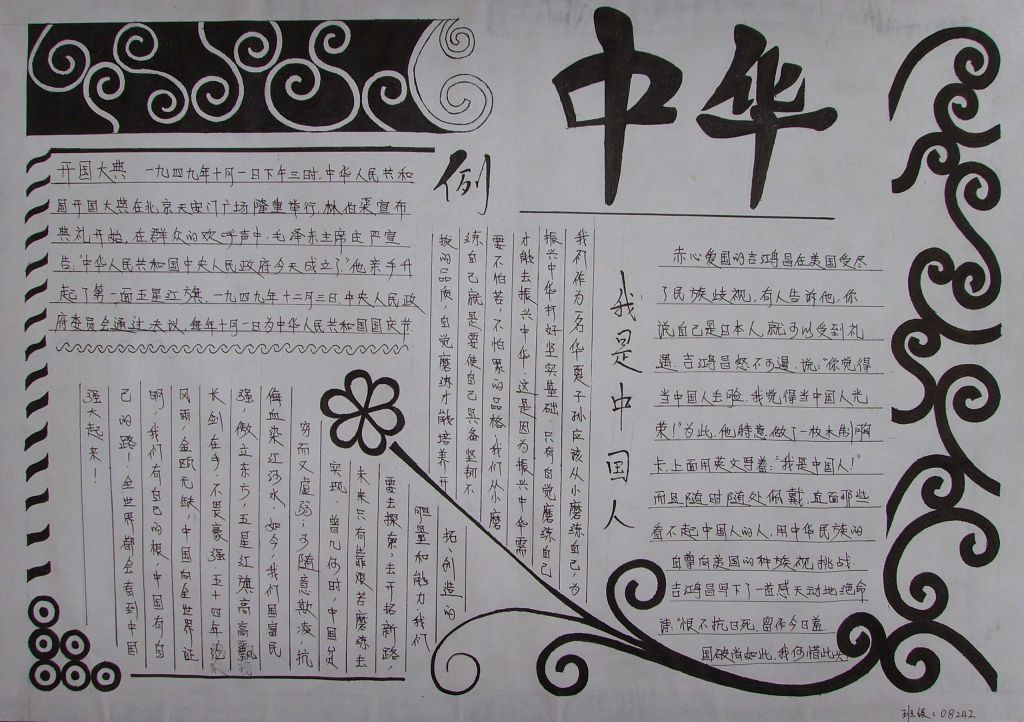 中华
例
开国大典 一九四九年十月一日下午三时，中华人民共和
国开国大典在北京天安门广场隆重举行，林伯渠宣布
典礼开始，在群众的欢呼声中，毛泽东主席庄严宣
告："中华人民共和国中央人民政府今天成立了"他亲手升
起了第一面五星红旗，一九四九年十二月三日，中央人民政
府委员会通过决议，每年十月一日为中华人民共和国国庆节
我们作为一名华夏子孙应该从小磨练自己，为
振兴中华打好坚实基础，只有自觉磨练自己
才能去振兴中华，这是因为振兴中华需
要不怕苦，不怕累的品格，我们从小磨
练自己就是要使自己具备坚韧不
拔的品质，自觉磨练才能培养开
拓、创造的
胆量和能力，我们
要去探索，去开拓新路，
未来只有靠艰苦磨练去
实现 曾几何时，中国贫
穷而又虚弱，可随意欺凌，抗
侮血染江河水，如今，我们国富民
强，傲立东方，五星红旗高高飘
长剑在手，不畏豪强，五十年沧
风雨，金瓯无缺，中国向全世界证
明，我们有自己的根，中国有自
己的路！全世界都会看到中国
强大起来！
我是中国人
赤心爱国的吉鸿昌在美国受尽
了民族歧视，有人告诉他，你
说自己是日本人，就可以受到礼
遇，吉鸿昌怒不可遏，说："你觉得
当中国人丢脸，我觉得当中国人光
荣！"为此，他特意做了一枚木制胸
卡，上面用英文写着："我是中国人！"
而且随时随处佩戴，直面那些
看不起中国人的人，用中华民族的
自尊向美国的种族视挑战
吉鸿昌写下了一首感天动地绝命
诗："恨不抗日死，留作今日羞，
国破尚如此，我何惜此头
班级：08242